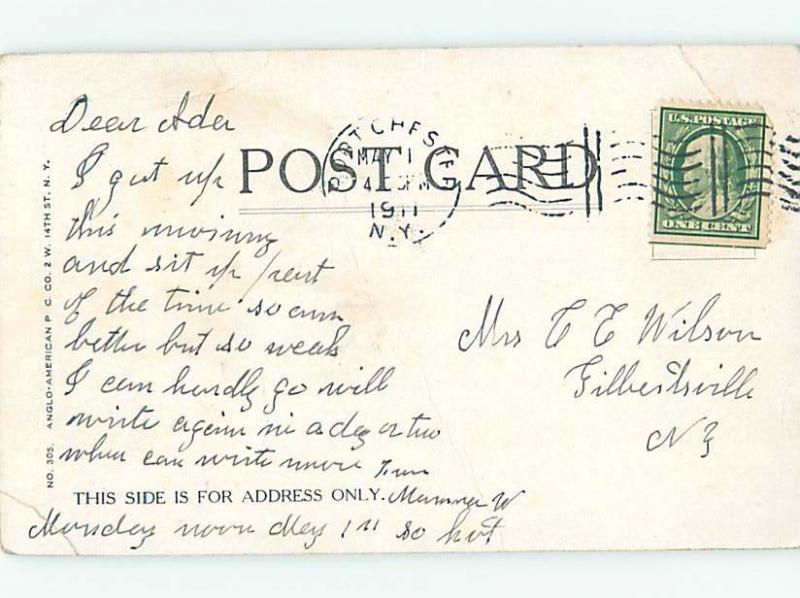 Dear Ada
I got up
this morning
and sit up / rest
of the time so am
better but so weak
I can hardly go will
write again in a day or two
when can write more from
Mamma W
Monday noon May 1st so hot
POST CARD
PORT CHESTER
MAY 1
4 PM
1911
N.Y.
U.S. POSTAGE
ONE CENT
Mrs C C Wilson
Gilbertsville
N Y
THIS SIDE IS FOR ADDRESS ONLY.
NO. 305. ANGLO-AMERICAN P. C. CO. 2 W. 14TH ST. N. Y.